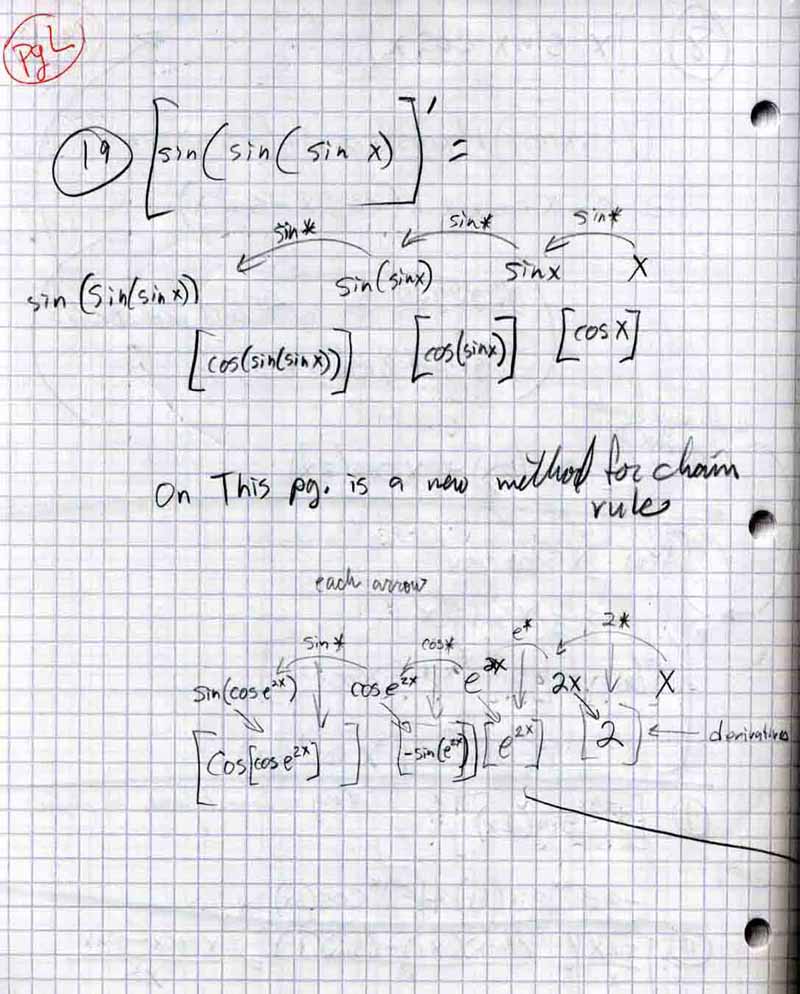 pg L
19 [sin(sin(sin x)]' =
sin* sin* sin*
sin(sin(sin x)) sin(sinx) sinx x
[cos(sin(sinx))] [cos(sinx)] [cos x]
On This pg. is a new method for chain
rule
each arrow
sin* cos* e* 2*
sin(cos e^2x) cos e^2x e^2x 2x x
[Cos[cos e^2x]] [-sin(e^2x)] [e^2x] [2] ← derivatives